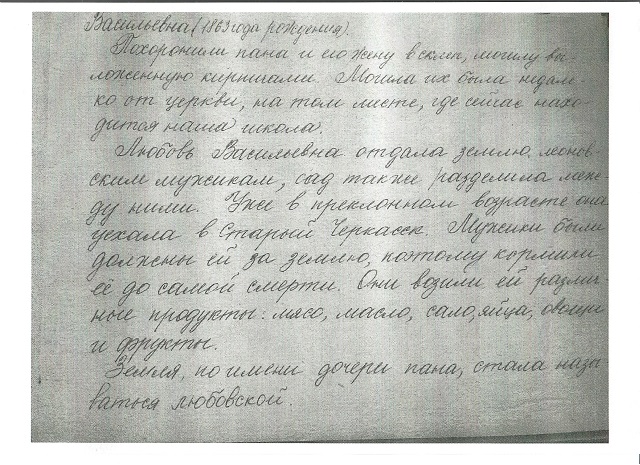 Васильевна (1863 года рождения).
Похоронили пана и его жену в склеп, могилу вы-
ложенную кирпичами. Могила их была недале-
ко от церкви, на том месте, где сейчас нахо-
дится наша школа.
Любовь Васильевна отдала землю леонов-
ским мужикам, сад также разделила меж-
ду ними. Уже в преклонном возрасте она
уехала в Старый Черкасск. Мужики были
должны ей за землю, поэтому кормили
её до самой смерти. Они возили ей различ-
ные продукты: мясо, масло, сало, яйца, овощи
и фрукты.
Земля, по имени дочери пана, стала назы-
ваться любовской.